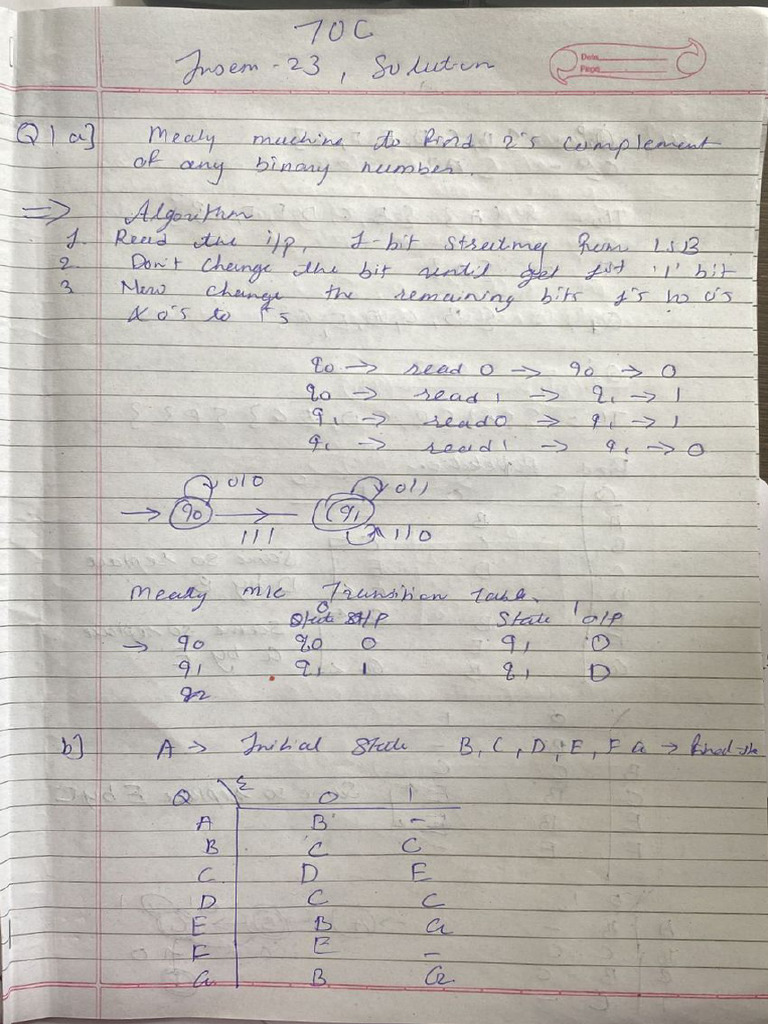 TOC
Insem - 23, Solution
Date
Page
Q1 a] Mealy machine to find 2's complement
of any binary number.
=> Algorithm
1. Read the i/p, 1-bit from LSB
2 Don't change the bit until get 1st '1' bit
3 Now change the remaining bits 1's to 0's
& 0's to 1's
q0 → read 0 → q0 → 0
q0 → read 1 → q1 → 1
q1 → read 0 → q1 → 1
q1 → read 1 → q1 → 0
0/0 0/1
→ q0 q1
1/1 1/0
Mealy m/c Transition table.
0 1
State O/P State O/P
→ q0 q0 0 q1 0
q1 q1 1 q1 0
q2
b] A → Initial State B, C, D, E, F G →
Q Σ 0 1
A B -
B C C
C D E
D C C
E B G
F E -
G B G